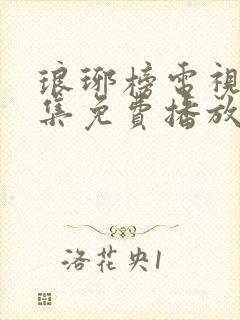 琅琊榜电視
集免費播放
洛花央1